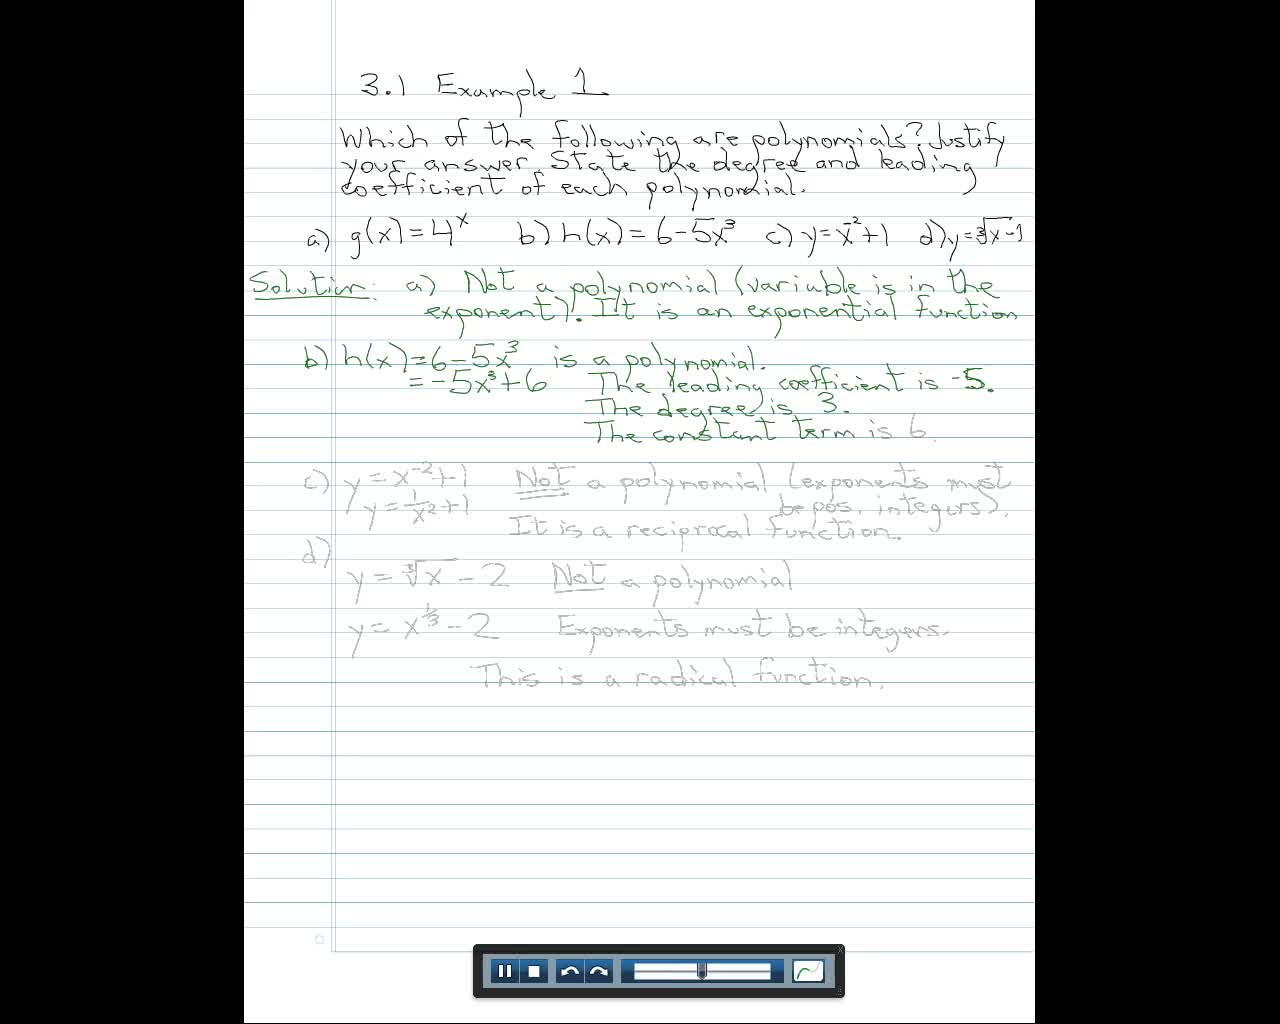 3.1 Example 1
Which of the following are polynomials? Justify
your answer. State the degree and leading
coefficient of each polynomial.
a) g(x) = 4^x b) h(x) = 6 - 5x³ c) y = x⁻² + 1 d) y = ∛x - 1
Solution: a) Not a polynomial (variable is in the
exponent). It is an exponential function
b) h(x) = 6 - 5x³ is a polynomial.
= -5x³ + 6 The leading coefficient is -5.
The degree is 3.
The constant term is 6.
c) y = x⁻² + 1 Not a polynomial (exponents must
y = 1/x² + 1 be pos. integers).
It is a reciprocal function.
d)
y = ∛x - 2 Not a polynomial
y = x^1/3 - 2 Exponents must be integers.
This is a radical function.